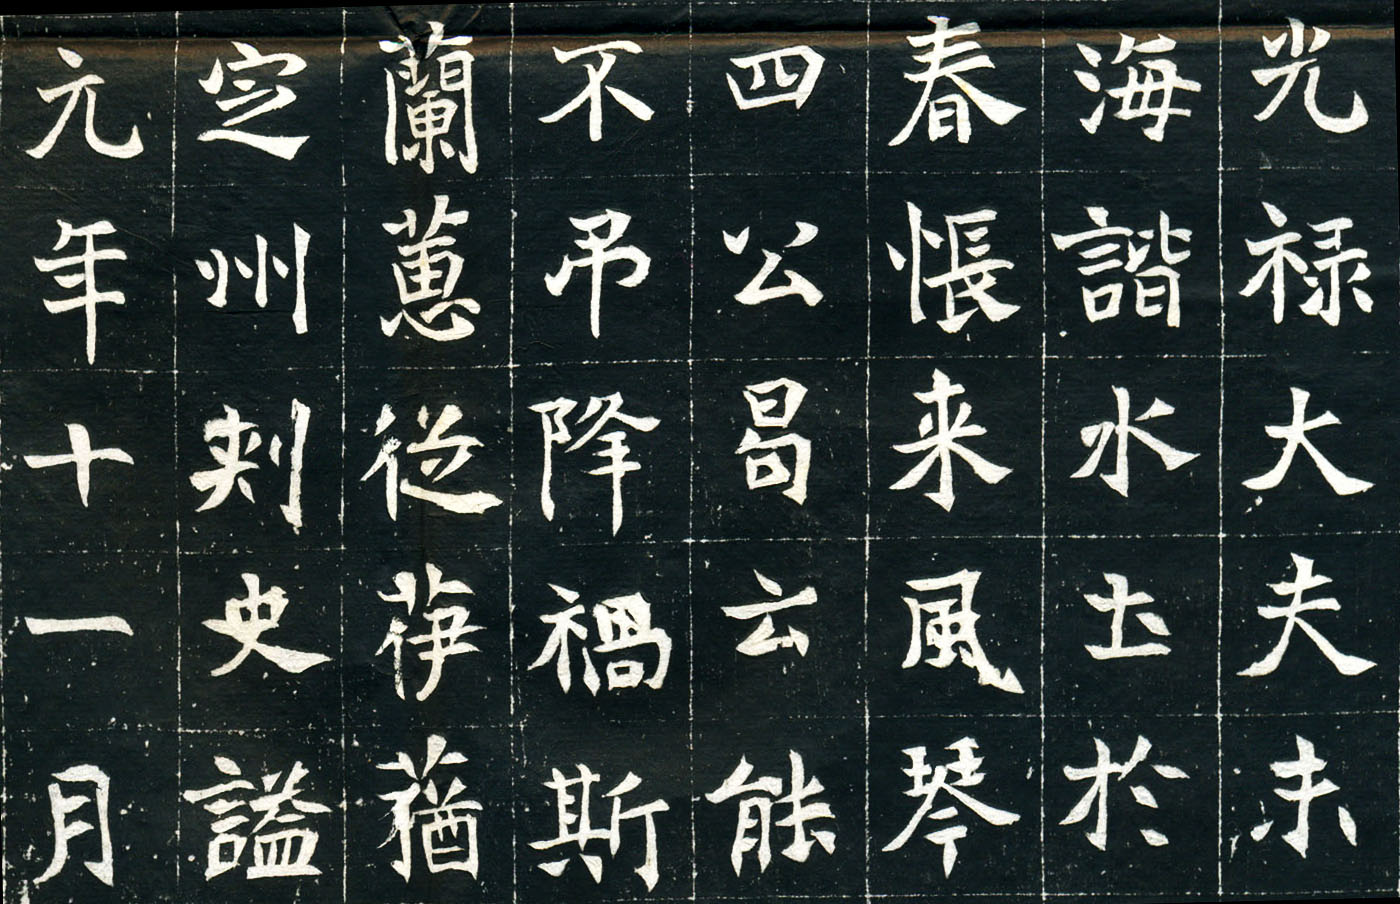 光禄大夫未
海諧水土於
春悵来風琴
四公曷云能
不吊降禍斯
蘭蕙從荓蕕
定州刾史謚
元年十一月